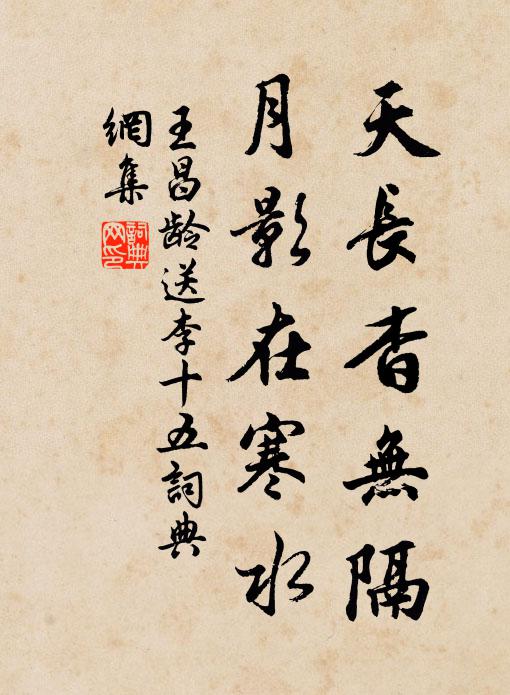 天長杳無隔
月影在寒水
王昌龄送李十五詞典
網集
詞典网印